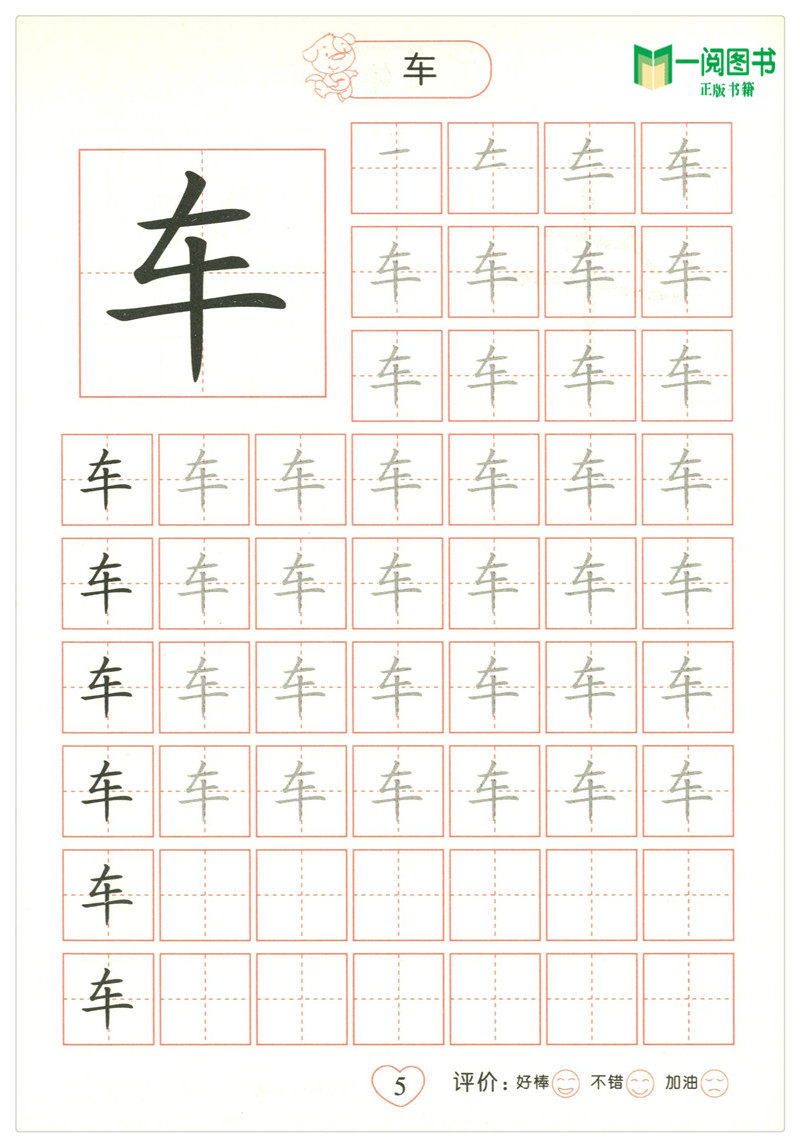 车
一阅图书
正版书籍
车
车
车 车 车 车
车 车 车 车
车 车 车 车 车 车 车
车 车 车 车 车 车 车
车 车 车 车 车 车 车
车 车 车 车 车 车 车
车
车
5 评价：好棒 不错 加油